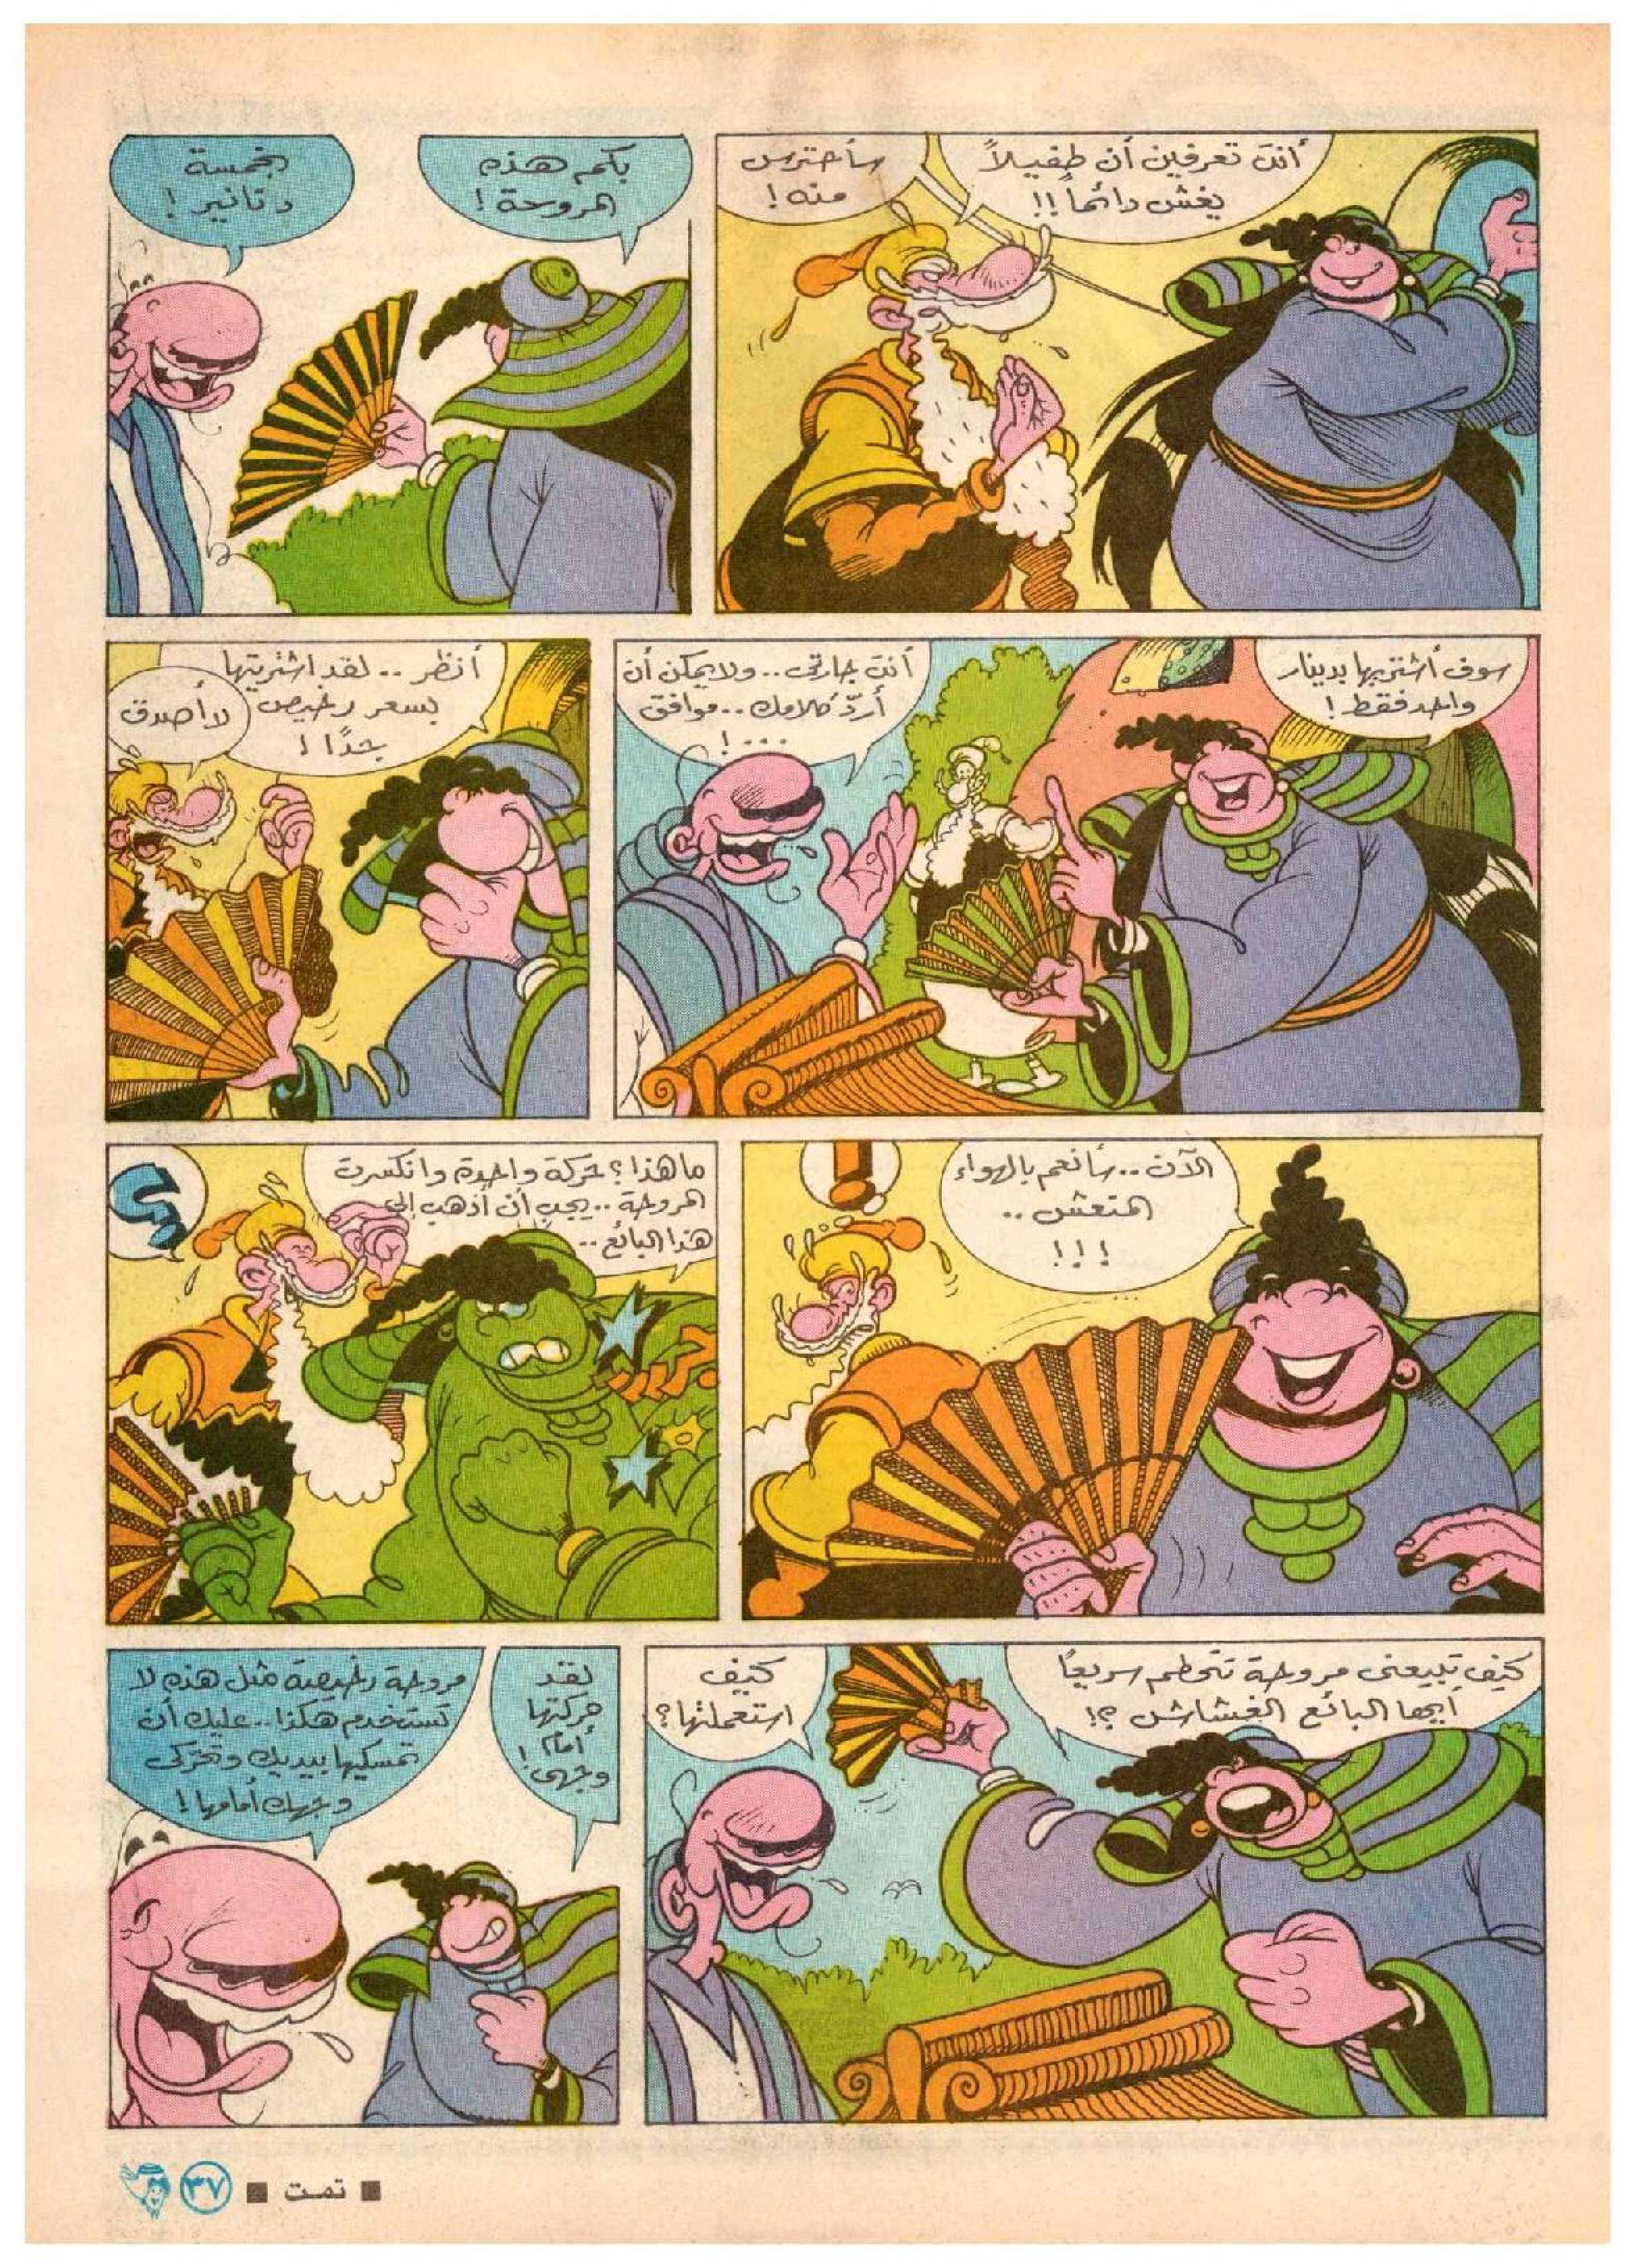 أنتِ تعرفين أن طفيلاً
يغش دائماً!!
سأحترس
منه!
بكم هذه
المروحة!
بخمسة
دنانير!
سوف أشتريها بدينار
واحد فقط!
أنتِ جارتى.. ولا يمكن أن
أردّ كلامك.. موافق
...!
أنظر.. لقد اشتريتها
بسعر رخيص
جدًا!
لا أصدق
الآن.. سأنعم بالهواء
المنعش..
!!!
!
ما هذا؟ حركة واحدة وانكسرت
المروحة.. يجب أن أذهب إلى
هذا البائع..
؟
كيف تبيعنى مروحة تتحطم سريعاً
أيها البائع الغشاش؟!
كيف
استعملتها؟
لقد
حركتها
أمام
وجهى!
مروحة رخيصة مثل هذه لا
تستخدم هكذا.. عليك أن
تمسكيها بيديك وتحركى
وجهك أمامها!
■ تمت ■ ٣٧